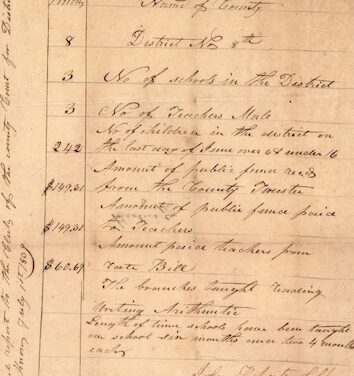 Name of County
8 District No 8th
3 No of schools in the District
3 No of Teachers Male
No of children in the district on
242 the last day of June over 4 & under 16
Amount of public fund recd
$149.31 from the County Trustee
Amount of public fund paid
$149.31 to Teachers
Amount paid teachers from
$60.69 rate Bill
The branches taught reading
Writing Arithmetic
Length of time schools have been taught
one school six months and two 4 months
each
report to the Clerk of the county Court for District
July 1st 1839